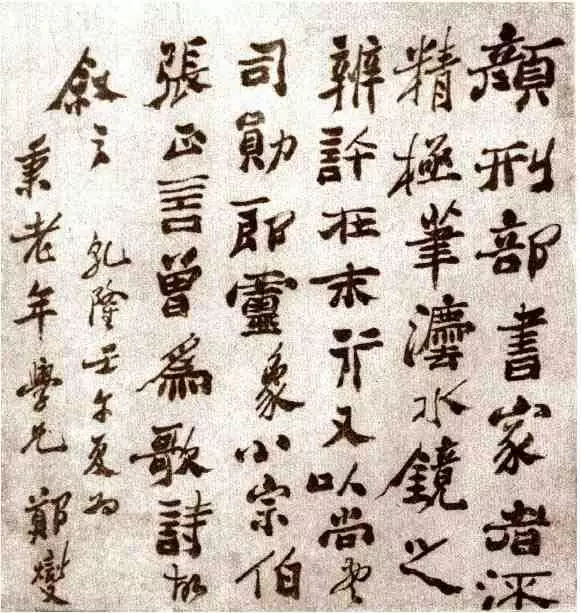 顏刑部書家者流
精極筆灋水鏡之
辨許在末行又以尚書
司勳郎盧象小宗伯
張正言曾爲歌詩故
敘之
乾隆壬午夏爲
秉老年學兄 鄭燮